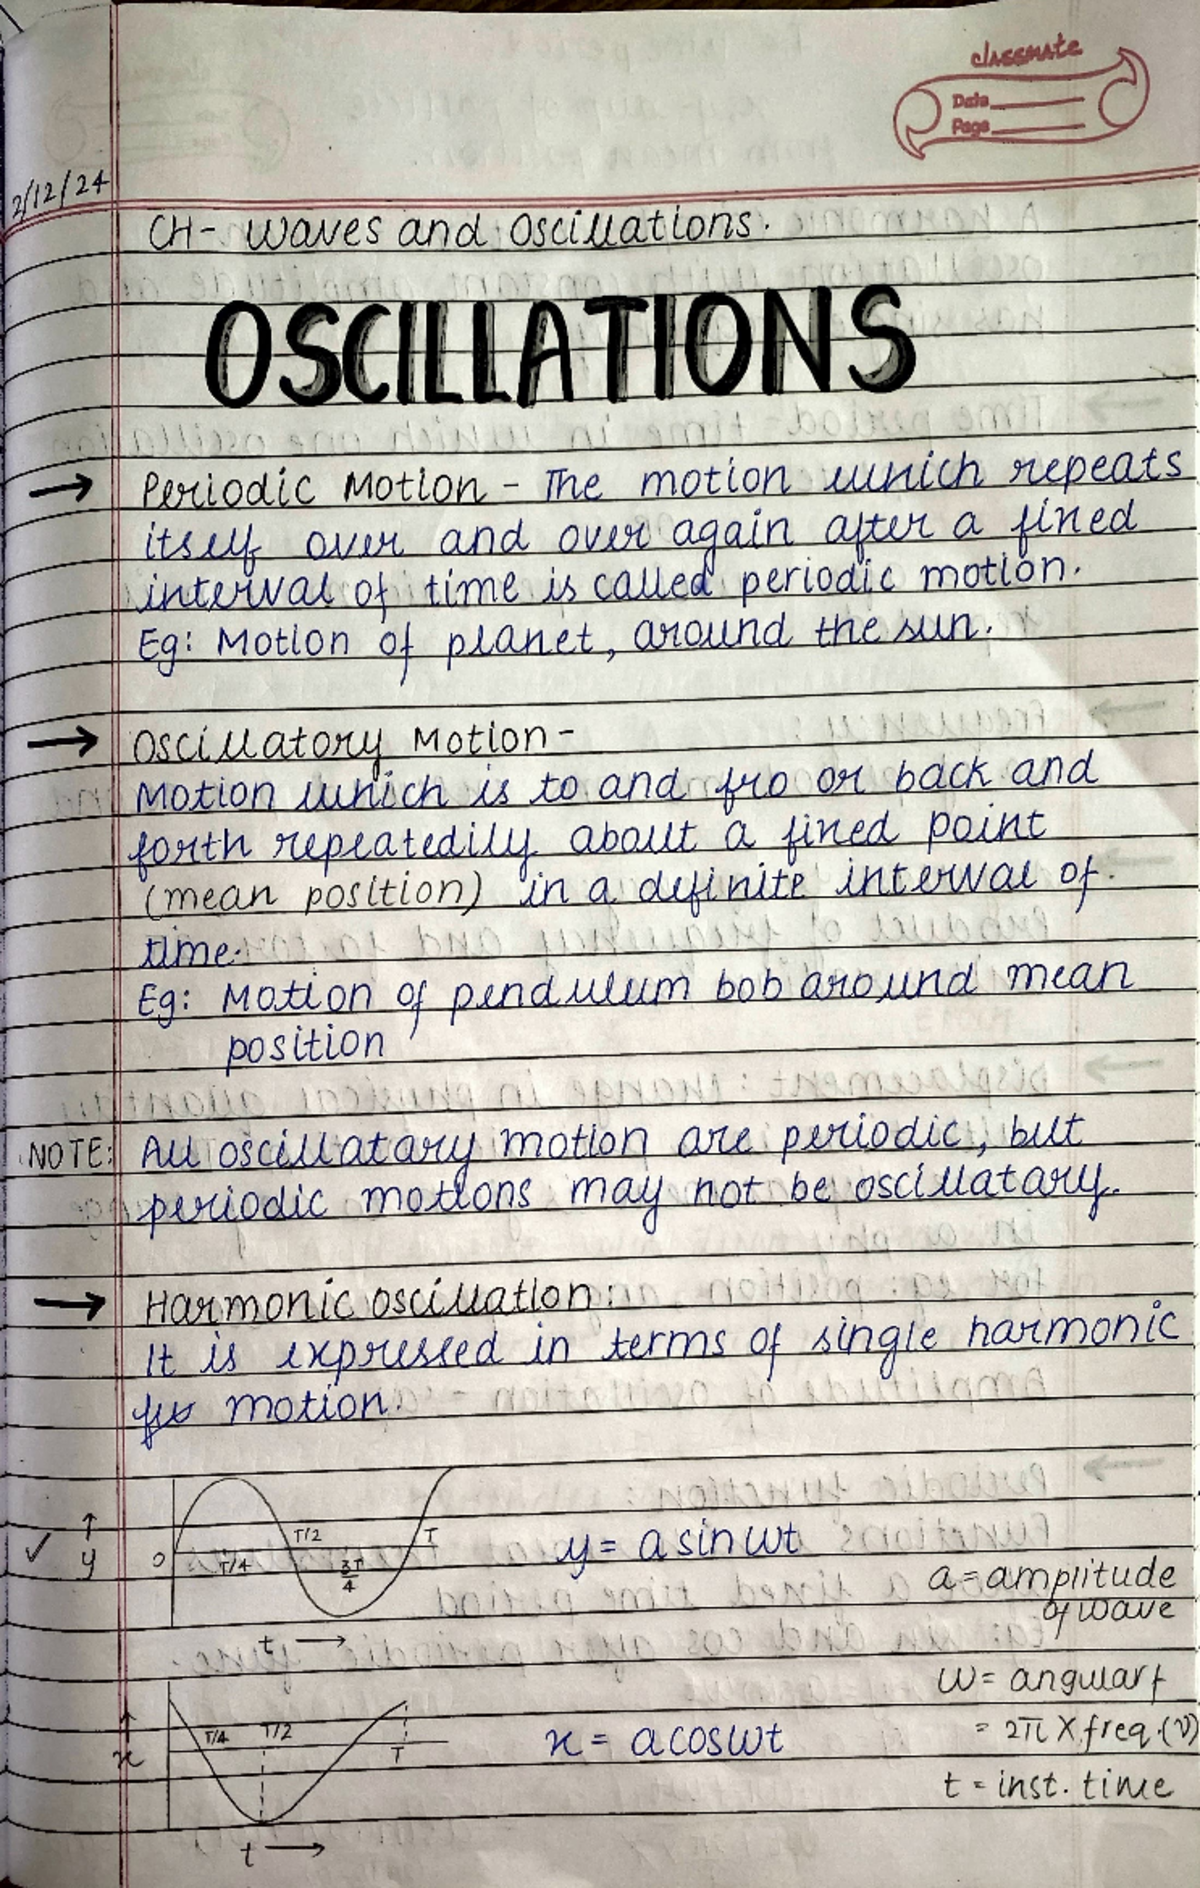 classmate
Date
Page
2/12/24
CH- Waves and Oscillations.
OSCILLATIONS
→ Periodic Motion - The motion which repeats
itself over and over again after a fixed
interval of time is called periodic motion.
Eg: Motion of planet, around the sun.
→ Oscillatory Motion-
Motion which is to and fro or back and
forth repeatedily about a fixed point
(mean position) in a definite interval of
time.
Eg: Motion of pendulum bob around mean
position
NOTE: All oscillatary motion are periodic, but
periodic motions may not be oscillatary.
→ Harmonic oscillation:
It is expressed in terms of single harmonic
motion.
✓ ↑ y 0 T/4 T/2 3T/4 T
t →
y = a sin ωt
a = amplitude
of wave
↑ x T/4 T/2 T
t →
x = a cos ωt
ω = angular f
= 2π X freq.(ν)
t = inst. time